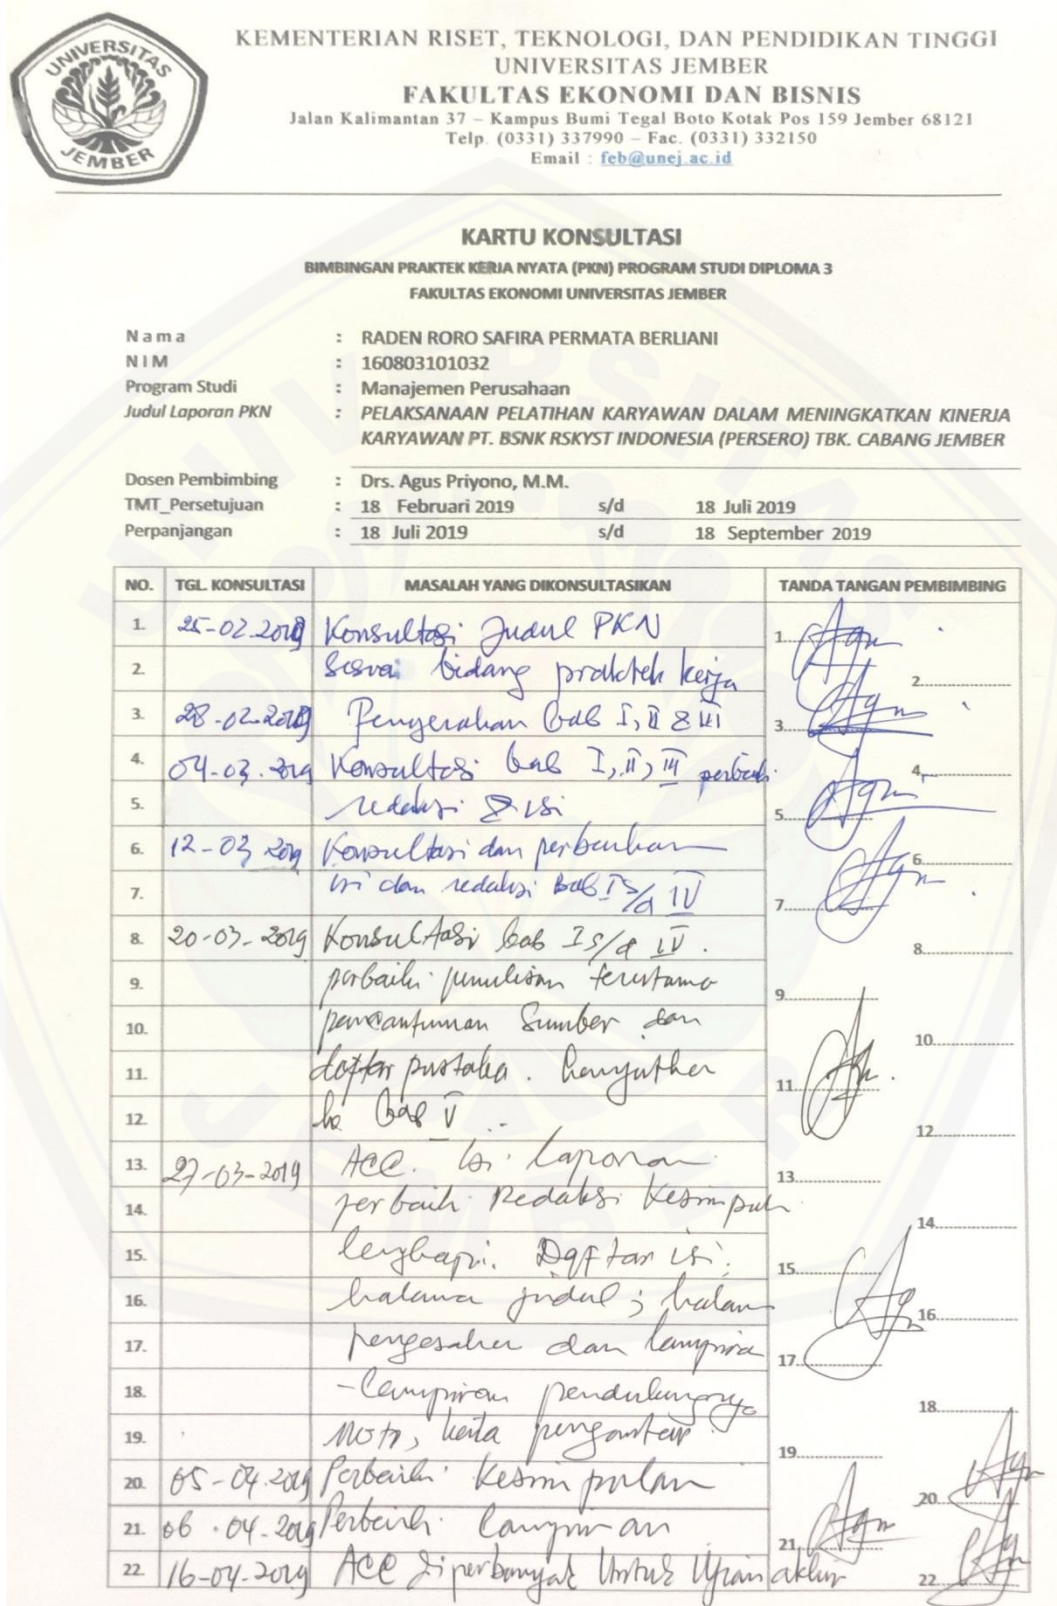 UNIVERSITAS
JEMBER
KEMENTERIAN RISET, TEKNOLOGI, DAN PENDIDIKAN TINGGI
UNIVERSITAS JEMBER
FAKULTAS EKONOMI DAN BISNIS
Jalan Kalimantan 37 – Kampus Bumi Tegal Boto Kotak Pos 159 Jember 68121
Telp. (0331) 337990 – Fac. (0331) 332150
Email : feb@unej.ac.id
KARTU KONSULTASI
BIMBINGAN PRAKTEK KERJA NYATA (PKN) PROGRAM STUDI DIPLOMA 3
FAKULTAS EKONOMI UNIVERSITAS JEMBER
Nama : RADEN RORO SAFIRA PERMATA BERLIANI
NIM : 160803101032
Program Studi : Manajemen Perusahaan
Judul Laporan PKN : PELAKSANAAN PELATIHAN KARYAWAN DALAM MENINGKATKAN KINERJA
KARYAWAN PT. BSNK RSKYST INDONESIA (PERSERO) TBK. CABANG JEMBER
Dosen Pembimbing : Drs. Agus Priyono, M.M.
TMT_Persetujuan : 18 Februari 2019 s/d 18 Juli 2019
Perpanjangan : 18 Juli 2019 s/d 18 September 2019
NO. TGL. KONSULTASI MASALAH YANG DIKONSULTASIKAN TANDA TANGAN PEMBIMBING
1. 25-02-2019 Konsultasi Judul PKN 1.
2. Sesuai bidang praktek kerja 2.
3. 28-02-2019 Penyerahan bab I, II & III 3.
4. 04-03-2019 Konsultasi bab I, II, III perbaiki 4.
5. redaksi & isi 5.
6. 12-03-2019 Konsultasi dan perbaikan 6.
7. isi dan redaksi Bab I s/d IV 7.
8. 20-03-2019 Konsultasi bab I s/d IV. 8.
9. perbaiki penulisan terutama 9.
10. pencantuman Sumber dan 10.
11. daftar pustaka. Lanjutkan 11.
12. ke bab V 12.
13. 27-03-2019 ACC. isi laporan 13.
14. perbaiki Redaksi Kesimpulan 14.
15. lengkapi. Daftar isi; 15.
16. halaman judul; halaman 16.
17. pengesahan dan lampiran 17.
18. - lampiran pendukungnya 18.
19. Moto, kata pengantar 19.
20. 05-04-2019 Perbaiki Kesimpulan 20.
21. 06-04-2019 Perbaiki lampiran 21.
22. 16-04-2019 ACC diperbanyak Untuk Ujian akhir 22.